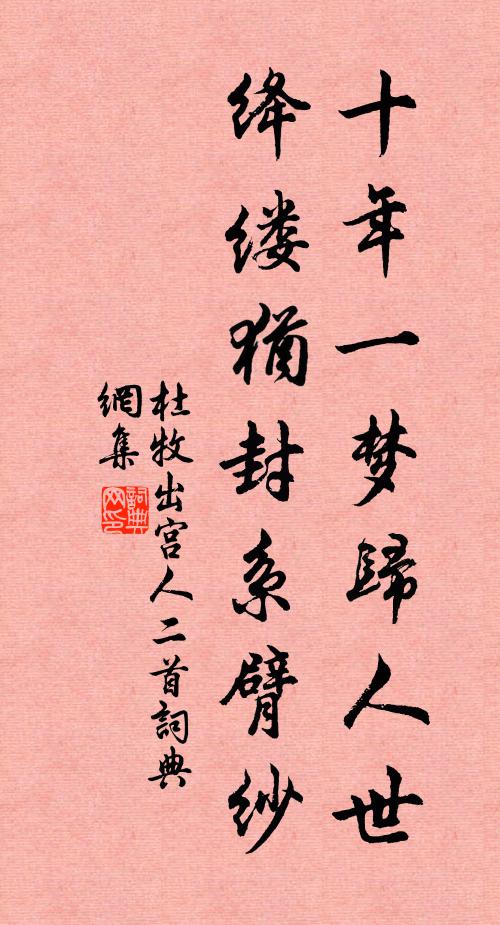 十年一梦歸人世
绛缕猶封系臂纱
杜牧出宫人二首詞典
網集
詞典网印